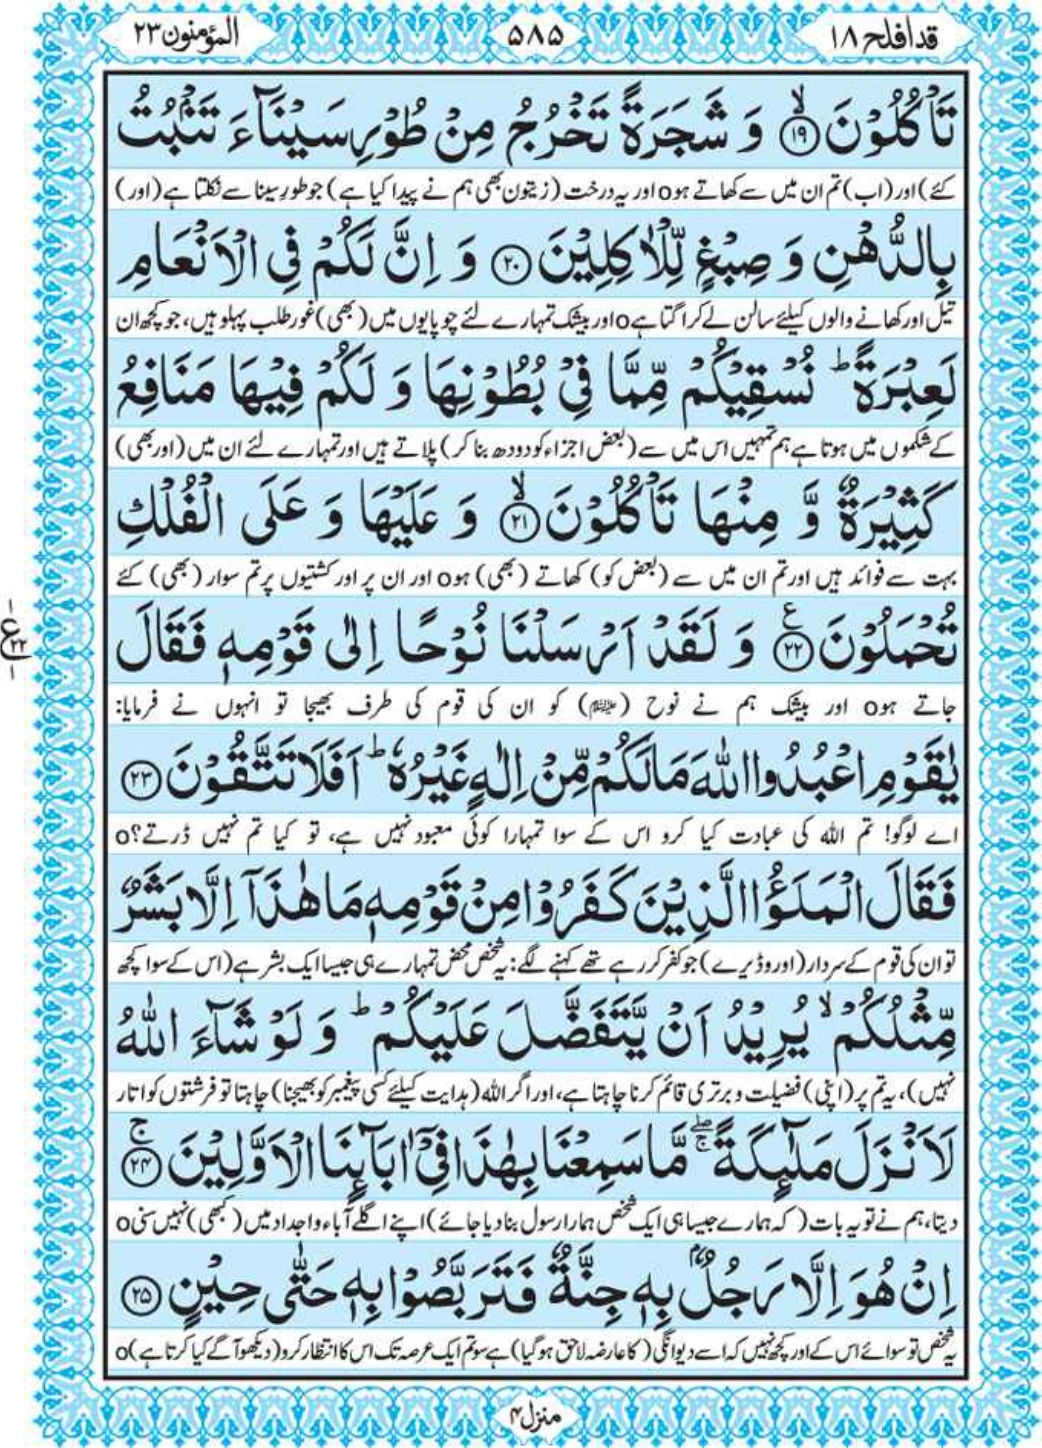 قد افلح ۱۸ ۵۸۵ المؤمنون ۲۳
تَاْكُلُوْنَ ﴿ۙ۱۹﴾ وَ شَجَرَةً تَخْرُجُ مِنْ طُوْرِ سَيْنَآءَ تَنْۢبُتُ
کئے) اور (اب) تم ان میں سے کھاتے ہوo اور یہ درخت (زیتون بھی ہم نے پیدا کیا ہے) جو طورِ سینا سے نکلتا ہے (اور)
بِالدُّهْنِ وَ صِبْغٍ لِّلْاٰكِلِيْنَ ﴿۲۰﴾ وَ اِنَّ لَكُمْ فِي الْاَنْعَامِ
تیل اور کھانے والوں کیلئے سالن لے کر اگتا ہےo اور بیشک تمہارے لئے چوپایوں میں (بھی) غور طلب پہلو ہیں، جو کچھ ان
لَعِبْرَةً ؕ نُسْقِيْكُمْ مِّمَّا فِيْ بُطُوْنِهَا وَ لَكُمْ فِيْهَا مَنَافِعُ
کے شکموں میں ہوتا ہے ہم تمہیں اس میں سے (بعض اجزاء کو دودھ بنا کر) پلاتے ہیں اور تمہارے لئے ان میں (اور بھی)
كَثِيْرَةٌ وَّ مِنْهَا تَاْكُلُوْنَ ﴿ۙ۲۱﴾ وَ عَلَيْهَا وَ عَلَى الْفُلْكِ
بہت سے فوائد ہیں اور تم ان میں سے (بعض کو) کھاتے (بھی) ہوo اور ان پر اور کشتیوں پر تم سوار (بھی) کئے
تُحْمَلُوْنَ ﴿۲۲﴾ ع وَ لَقَدْ اَرْسَلْنَا نُوْحًا اِلٰى قَوْمِهٖ فَقَالَ
جاتے ہوo اور بیشک ہم نے نوح (علیہ السلام) کو ان کی قوم کی طرف بھیجا تو انہوں نے فرمایا:
يٰقَوْمِ اعْبُدُوا اللّٰهَ مَا لَكُمْ مِّنْ اِلٰهٍ غَيْرُهٗ ؕ اَفَلَا تَتَّقُوْنَ ﴿۲۳﴾
اے لوگو! تم اللہ کی عبادت کیا کرو اس کے سوا تمہارا کوئی معبود نہیں ہے، تو کیا تم نہیں ڈرتے؟o
فَقَالَ الْمَلَؤُا الَّذِيْنَ كَفَرُوْا مِنْ قَوْمِهٖ مَا هٰذَآ اِلَّا بَشَرٌ
تو ان کی قوم کے سردار (اور وڈیرے) جو کفر کر رہے تھے کہنے لگے: یہ شخص محض تمہارے ہی جیسا ایک بشر ہے (اس کے سوا کچھ
مِّثْلُكُمْ ۙ يُرِيْدُ اَنْ يَّتَفَضَّلَ عَلَيْكُمْ ؕ وَ لَوْ شَآءَ اللّٰهُ
نہیں)، یہ تم پر (اپنی) فضیلت و برتری قائم کرنا چاہتا ہے، اور اگر اللہ (ہدایت کیلئے کسی پیغمبر کو بھیجنا) چاہتا تو فرشتوں کو اتار
لَاَنْزَلَ مَلٰٓئِكَةً ۚۖ مَّا سَمِعْنَا بِهٰذَا فِيْٓ اٰبَآئِنَا الْاَوَّلِيْنَ ﴿ۚ۲۴﴾
دیتا، ہم نے تو یہ بات (کہ ہمارے جیسا ہی ایک شخص ہمارا رسول بنا دیا جائے) اپنے اگلے آباء و اجداد میں (کبھی) نہیں سنیo
اِنْ هُوَ اِلَّا رَجُلٌۢ بِهٖ جِنَّةٌ فَتَرَبَّصُوْا بِهٖ حَتّٰى حِيْنٍ ﴿۲۵﴾
یہ شخص تو سوائے اس کے اور کچھ نہیں کہ اسے دیوانگی (کا عارضہ لاحق ہو گیا) ہے سو تم ایک عرصہ تک اس کا انتظار کرو (دیکھو آگے کیا کرتا ہے)o
منزل ۴